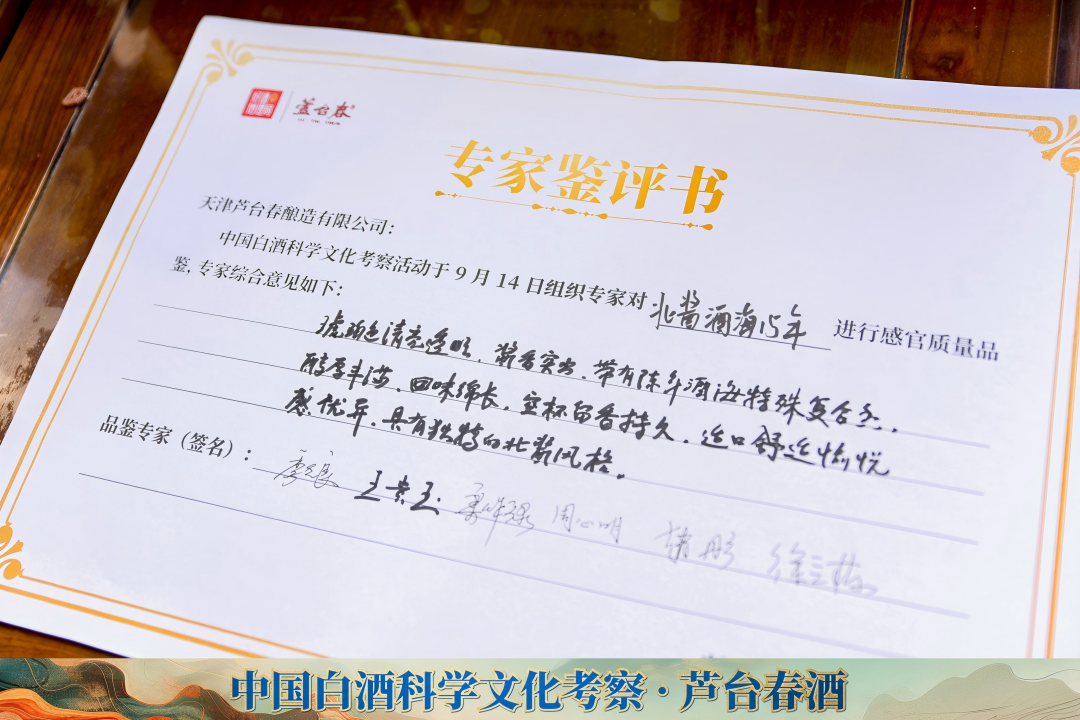 芦台春
专家鉴评书
天津芦台春酿造有限公司：
中国白酒科学文化考察活动于 9 月 14 日组织专家对 北酱酒海15年 进行感官质量品
鉴，专家综合意见如下：
琥珀色清亮透明，酱香突出，带有陈年酒海特殊复合香，
醇厚丰满，回味绵长，空杯留香持久，进口舒适愉悦
感优异，具有独特的北酱风格。
品鉴专家（签名）：
王贵玉 周心明 徐
中国白酒科学文化考察·芦台春酒